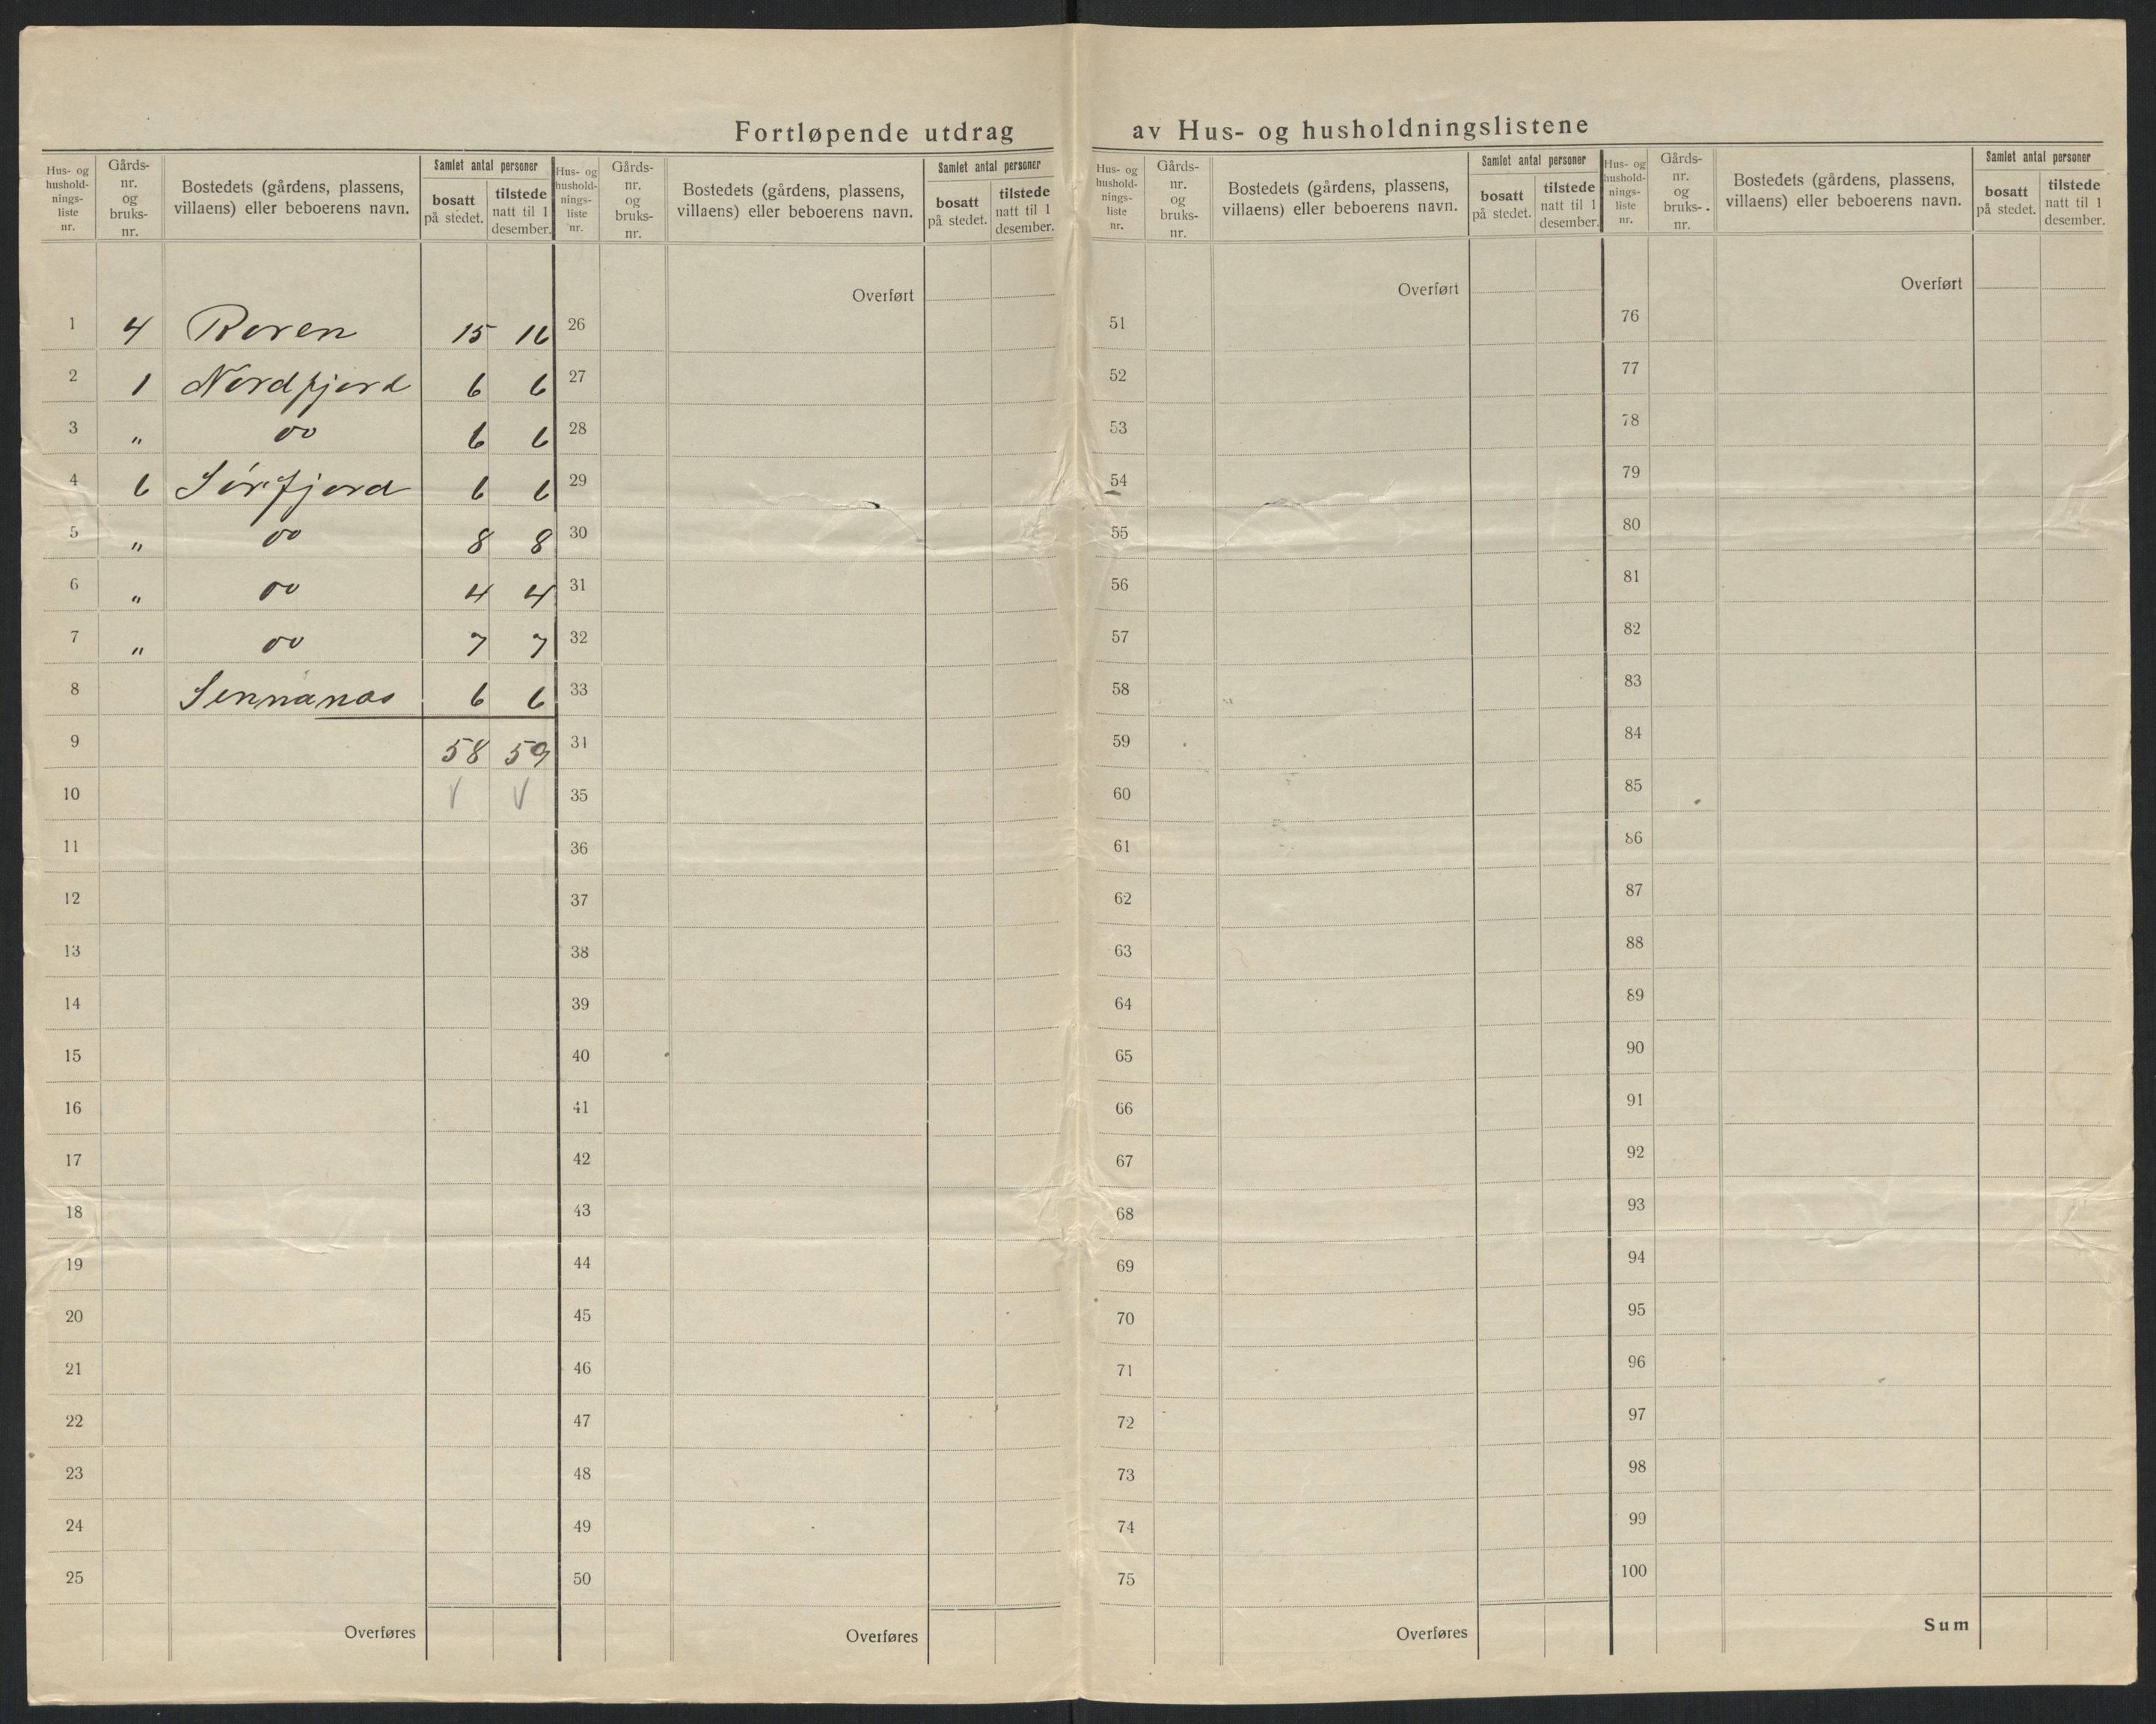 Fortløpende utdrag av Hus- og husholdningslistene
Hus- og hushold-nings-liste nr. Gårds-nr. og bruks-nr. Bostedets (gårdens, plassens, villaens) eller beboerens navn. Samlet antal personer bosatt på stedet. tilstede natt til 1 desember.
1 4 Roren 15 16
2 1 Nordfjord 6 6
3 " do 6 6
4 6 Sørfjord 6 6
5 " do 8 8
6 " do 4 4
7 " do 7 7
8 Sennanas 6 6
9 58 59
10 V V
11
12
13
14
15
16
17
18
19
20
21
22
23
24
25
Overføres
Hus- og hushold-nings-liste nr. Gårds-nr. og bruks-nr. Bostedets (gårdens, plassens, villaens) eller beboerens navn. Samlet antal personer bosatt på stedet. tilstede natt til 1 desember.
Overført
26
27
28
29
30
31
32
33
34
35
36
37
38
39
40
41
42
43
44
45
46
47
48
49
50
Overføres
Hus- og hushold-nings-liste nr. Gårds-nr. og bruks-nr. Bostedets (gårdens, plassens, villaens) eller beboerens navn. Samlet antal personer bosatt på stedet. tilstede natt til 1 desember.
Overført
51
52
53
54
55
56
57
58
59
60
61
62
63
64
65
66
67
68
69
70
71
72
73
74
75
Overføres
Hus- og hushold-nings-liste nr. Gårds-nr. og bruks-nr. Bostedets (gårdens, plassens, villaens) eller beboerens navn. Samlet antal personer bosatt på stedet. tilstede natt til 1 desember.
Overført
76
77
78
79
80
81
82
83
84
85
86
87
88
89
90
91
92
93
94
95
96
97
98
99
100
Sum